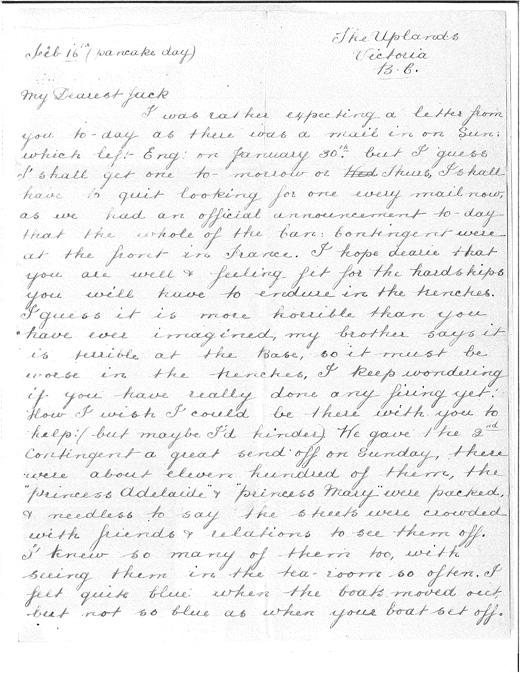 The Uplands
Feb 16th (pancake day)
Victoria
B.C.
My Dearest Jack
I was rather expecting a letter from
you to-day as there was a mail in on Sun:
which left Eng: on January 30th. but I guess
I shall get one to-morrow or Wed Thurs, I shall
have to quit looking for one every mail now,
as we had an official announcement to-day
that the whole of the Can: Contingent were
at the front in France. I hope dearie that
you are well & feeling fit for the hardships
you will have to endure in the trenches.
I guess it is more horrible than you
have ever imagined, my brother says it
is terrible at the Base, so it must be
worse in the trenches, I keep wondering
if you have really done any firing yet.
How I wish I could be there with you to
help! (but maybe I'd hinder) We gave the 2nd
Contingent a great send off on Sunday, there
were about eleven hundred of them, the
"Princess Adelaide" & "Princess Mary" were packed,
& needless to say the streets were crowded
with friends & relations to see them off.
I knew so many of them too, with
seeing them in the tea-room so often. I
felt quite blue when the boats moved out,
but not so blue as when your boat set off.